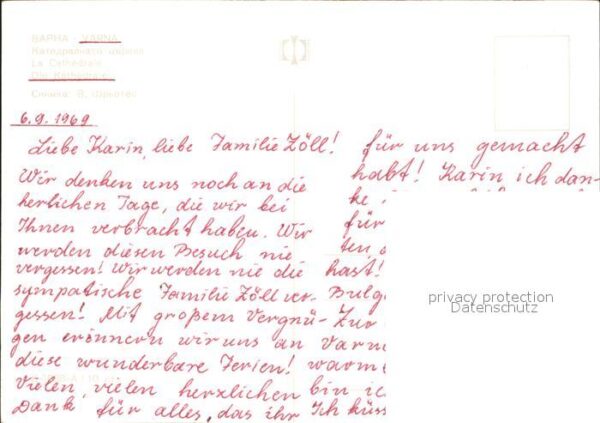 ВАРНА - VARNA
Катедралната църква
La Cathédrale
Die Kathedrale
Снимка: В. Фрнотес
6.9.1969
Liebe Karin, liebe Familie Zöll!
Wir denken uns noch an die
herlichen Tage, die wir bei
Ihnen verbracht haben. Wir
werden diesen Besuch nie
vergessen! Wir werden nie die
sympatische Familie Zöll ver-
gessen! Mit großem Vergnü-
gen erinnern wir uns an
diese wunderbare Ferien!
Vielen, vielen herzlichen
Dank für alles, das ihr
für uns gemacht
habt! Karin ich dan-
ke
für
ten
hast!
Bulg
Zur
Varn
warm
bin ic
Ich küss
privacy protection
Datenschutz